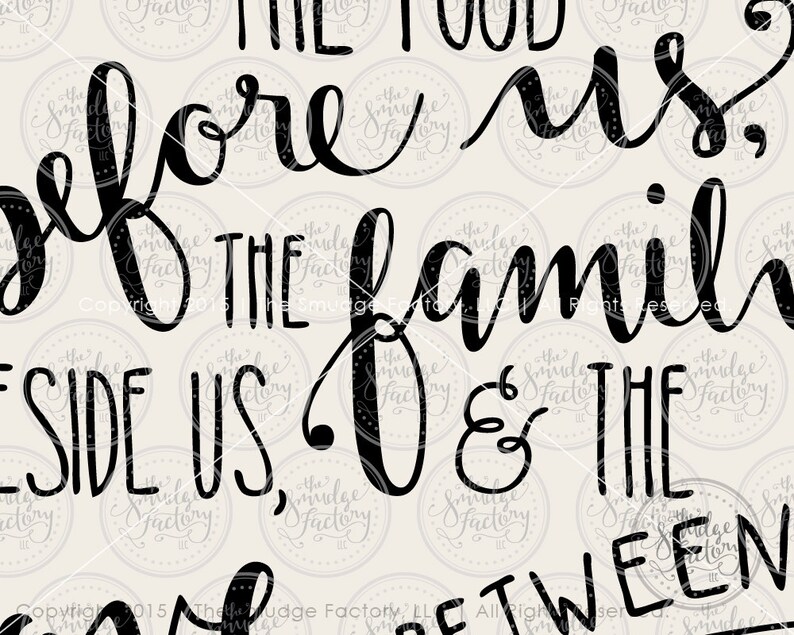 THE FOOD
before us,
THE family
ESIDE US, & THE
BETWEEN
Copyright 2015 | The Smudge Factory, LLC | All Rights Reserved
Copyright 2015 | The Smudge Factory, LLC | All Rights Reserved.
the Smudge Factory LLC